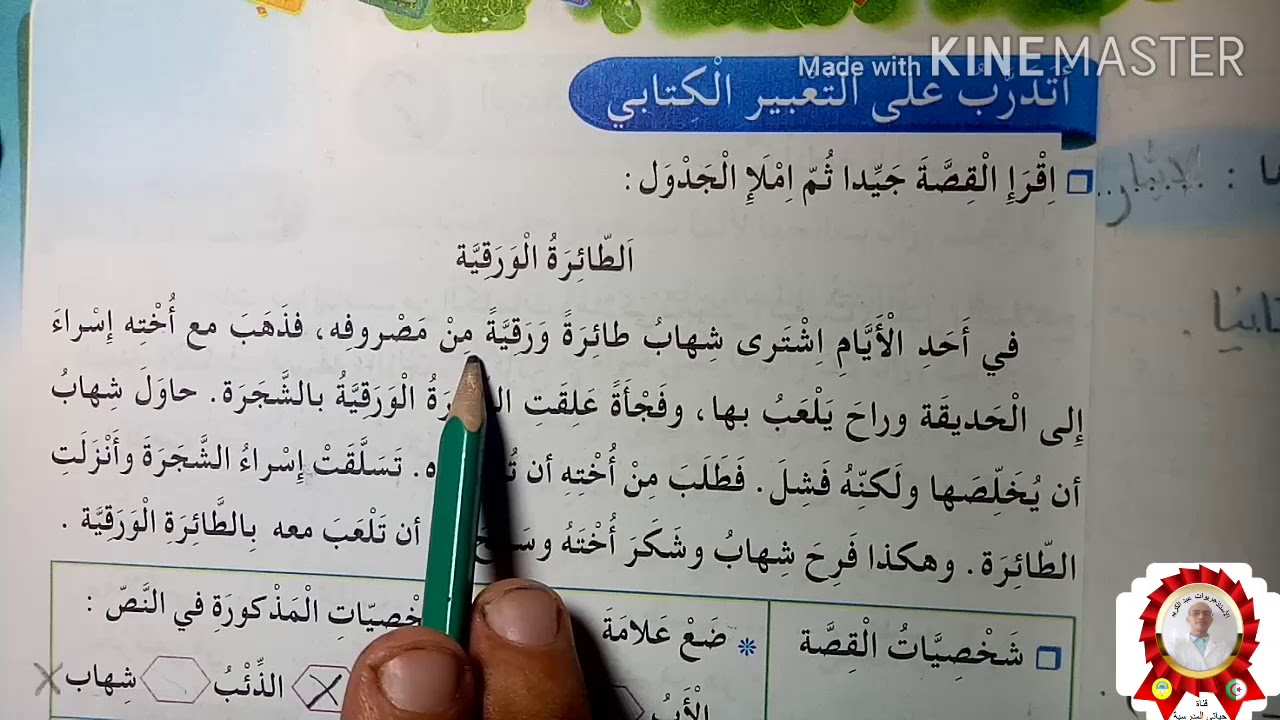 Made with KINEMASTER
أَتَدَرَّبُ عَلى التَّعْبيرِ الْكِتابي
اِقْرَإِ الْقِصَّةَ جَيِّدا ثُمّ اِمْلَإِ الْجَدْوَل :
اَلطّائِرَةُ الْوَرَقِيَّة
في أَحَدِ الْأَيَّامِ اِشْتَرى شِهابُ طائِرَةً وَرَقِيَّةً مِنْ مَصْروفِه، فذَهَبَ مع أُخْتِه إِسْراءَ
إِلى الْحَديقَة وراحَ يَلْعَبُ بها، وفَجْأَةً عَلِقَتِ الْوَرَقِيَّةُ بالشَّجَرَة. حاوَلَ شِهابُ
أن يُخَلِّصَها ولَكنّهُ فَشِلَ. فَطَلَبَ مِنْ أُخْتِهِ أن تَسَلَّقَتْ إِسْراءُ الشَّجَرَةَ وأَنْزَلَتِ
الطّائِرَة. وهكذا فَرِحَ شِهابُ وشَكَرَ أُخْتَهُ أن تَلْعَبَ معه بِالطَّائِرَةِ الْوَرَقِيَّة .
شَخْصِيَّاتُ الْقِصَّة
* ضَعْ عَلامَةَ الْمَذْكورَةِ في النَّصّ :
الْأَبُ الذِّئْبُ X شِهاب X
الأستاذ حربوات عبد الكريم
قناة
حياتي المدرسية